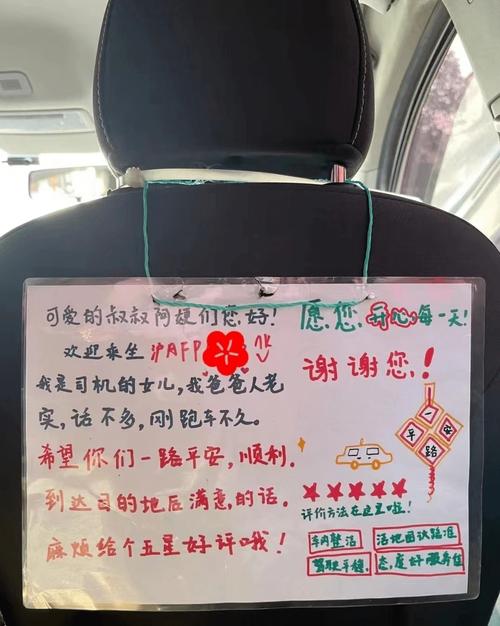 可爱的叔叔阿姨们您好!
欢迎来坐沪AFP
我是司机的女儿,我爸爸人老
实,话不多,刚跑车不久。
希望你们一路平安,顺利.
到达目的地后满意的话.
麻烦给个五星好评哦!
愿您,开心每一天!
谢谢您!
一路平安
评价方法在这里啦!
车内整洁
活地图认路准
驾驶平稳
态度好服务佳